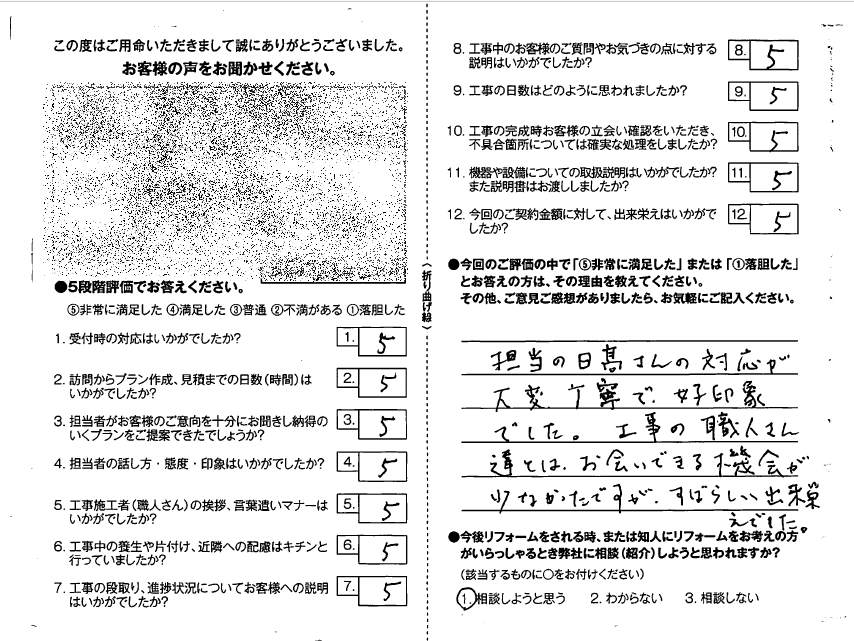 この度はご用命いただきまして誠にありがとうございました。
お客様の声をお聞かせください。
●5段階評価でお答えください。
⑤非常に満足した ④満足した ③普通 ②不満がある ①落胆した
1. 受付時の対応はいかがでしたか？ 1. 5
2. 訪問からプラン作成、見積までの日数（時間）は 2. 5
いかがでしたか？
3. 担当者がお客様のご意向を十分にお聞きし納得の 3. 5
いくプランをご提案できたでしょうか？
4. 担当者の話し方・態度・印象はいかがでしたか？ 4. 5
5. 工事施工者（職人さん）の挨拶、言葉遣いマナーは 5. 5
いかがでしたか？
6. 工事中の養生や片付け、近隣への配慮はキチンと 6. 5
行っていましたか？
7. 工事の段取り、進捗状況についてお客様への説明 7. 5
はいかがでしたか？
〈折り曲げ線〉
8. 工事中のお客様のご質問やお気づきの点に対する 8. 5
説明はいかがでしたか？
9. 工事の日数はどのように思われましたか？ 9. 5
10. 工事の完成時お客様の立会い確認をいただき、 10. 5
不具合箇所については確実な処理をしましたか？
11. 機器や設備についての取扱説明はいかがでしたか？ 11. 5
また説明書はお渡ししましたか？
12. 今回のご契約金額に対して、出来栄えはいかがで 12. 5
したか？
●今回のご評価の中で「⑤非常に満足した」または「①落胆した」
とお答えの方は、その理由を教えてください。
その他、ご意見ご感想がありましたら、お気軽にご記入ください。
担当の日髙さんの対応が
大変丁寧で、好印象
でした。工事の職人さん
達とは、お会いできる機会が
少なかったですが、すばらしい出来栄
えでした。
●今後リフォームをされる時、または知人にリフォームをお考えの方
がいらっしゃるとき弊社に相談（紹介）しようと思われますか？
（該当するものに○をお付けください）
1. 相談しようと思う 2. わからない 3. 相談しない